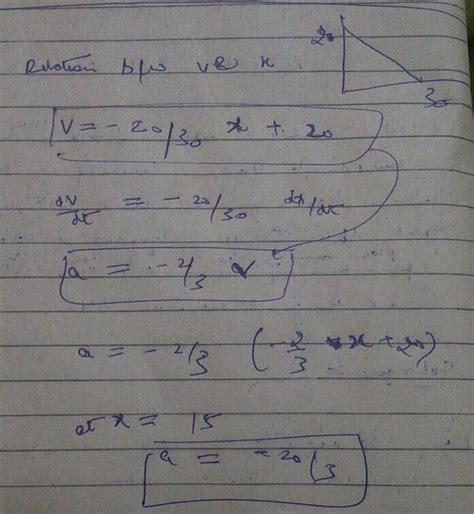 20
Relation b/w v & x
30
V = - 20/30 x + 20
dv/dt = - 20/30 dx/dt
a = - 2/3 v
a = - 2/3 (-2/3 x + 20)
at x = 15
a = - 20/3